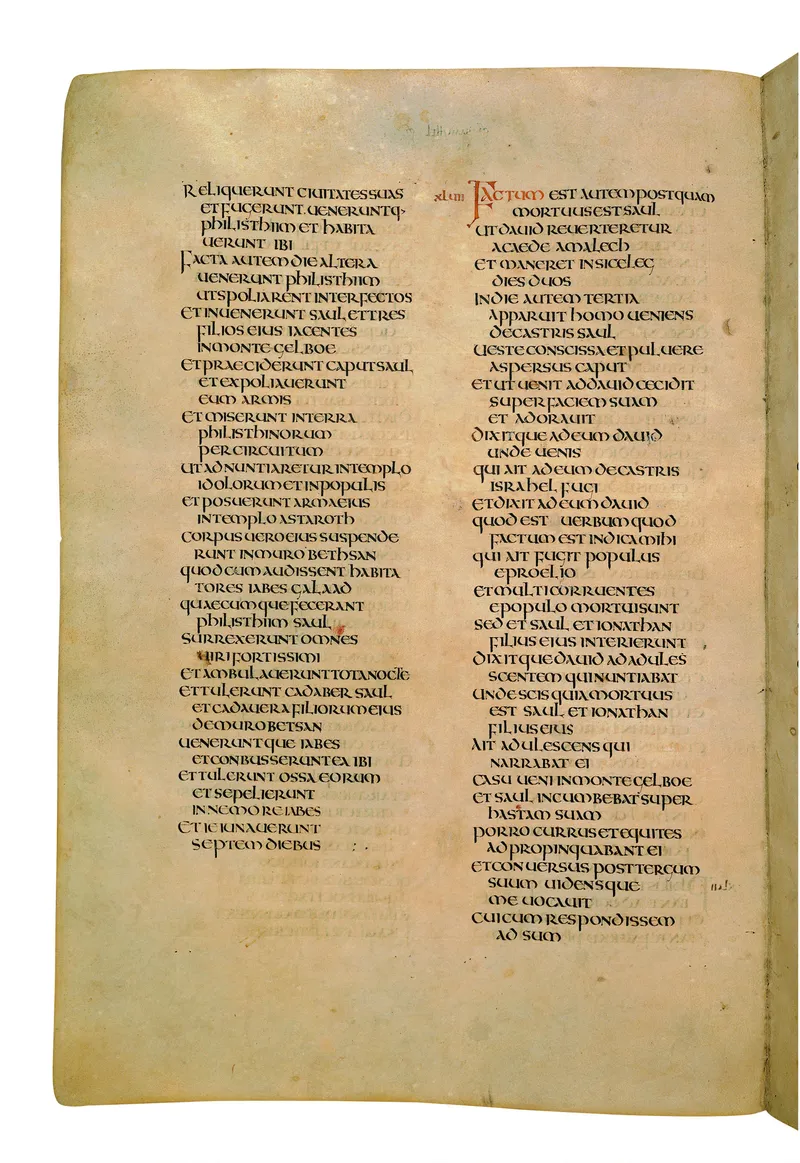 RELIQUERUNT CIUITATES SUAS
ET FUGERUNT. UENERUNTQ·
PHILISTHIIM ET HABITA
UERUNT IBI
FACTA AUTEM DIE ALTERA
UENERUNT PHILISTHIIM
UT SPOLIARENT INTERFECTOS
ET INUENERUNT SAUL ET TRES
FILIOS EIUS IACENTES
IN MONTE GELBOE
ET PRAECIDERUNT CAPUT SAUL
ET EXPOLIAUERUNT
EUM ARMIS
ET MISERUNT IN TERRA
PHILISTHINORUM
PER CIRCUITUM
UT ADNUNTIARETUR IN TEMPLO
IDOLORUM ET IN POPULIS
ET POSUERUNT ARMA EIUS
IN TEMPLO ASTAROTH
CORPUS UERO EIUS SUSPENDE
RUNT IN MURO BETHSAN
QUOD CUM AUDISSENT HABITA
TORES IABES GALAAD
QUAECUMQUE FECERANT
PHILISTHIIM SAUL
SURREXERUNT OMNES
UIRI FORTISSIMI
ET AMBULAUERUNT TOTA NOCTE
ET TULERUNT CADABER SAUL
ET CADAUERA FILIORUM EIUS
DE MURO BETSAN
UENERUNTQUE IABES
ET CONBUSSERUNT EA IBI
ET TULERUNT OSSA EORUM
ET SEPELIERUNT
IN NEMORE IABES
ET IEIUNAUERUNT
SEPTEM DIEBUS
XLIIII FACTUM EST AUTEM POSTQUAM
MORTUUS EST SAUL
UT DAUID REUERTERETUR
A CAEDE AMALECH
ET MANERET IN SICELEG
DIES DUOS
IN DIE AUTEM TERTIA
APPARUIT HOMO UENIENS
DE CASTRIS SAUL
UESTE CONSCISSA ET PULUERE
ASPERSUS CAPUT
ET UT UENIT AD DAUID CECIDIT
SUPER FACIEM SUAM
ET ADORAUIT
DIXITQUE AD EUM DAUID
UNDE UENIS
QUI AIT AD EUM DE CASTRIS
ISRAHEL FUGI
ET DIXIT AD EUM DAUID
QUOD EST UERBUM QUOD
FACTUM EST INDICA MIHI
QUI AIT FUGIT POPULUS
E PROELIO
ET MULTI CORRUENTES
E POPULO MORTUI SUNT
SED ET SAUL ET IONATHAN
FILIUS EIUS INTERIERUNT
DIXITQUE DAUID AD ADULES
SCENTEM QUI NUNTIABAT
UNDE SCIS QUIA MORTUUS
EST SAUL ET IONATHAN
FILIUS EIUS
AIT ADULESCENS QUI
NARRABAT EI
CASU UENI IN MONTE GELBOE
ET SAUL INCUMBEBAT SUPER
HASTAM SUAM
PORRO CURRUS ET EQUITES
ADPROPINQUABANT EI
ET CONUERSUS POST TERGUM
SUUM UIDENSQUE
ME UOCAUIT
CUI CUM RESPONDISSEM
AD SUM